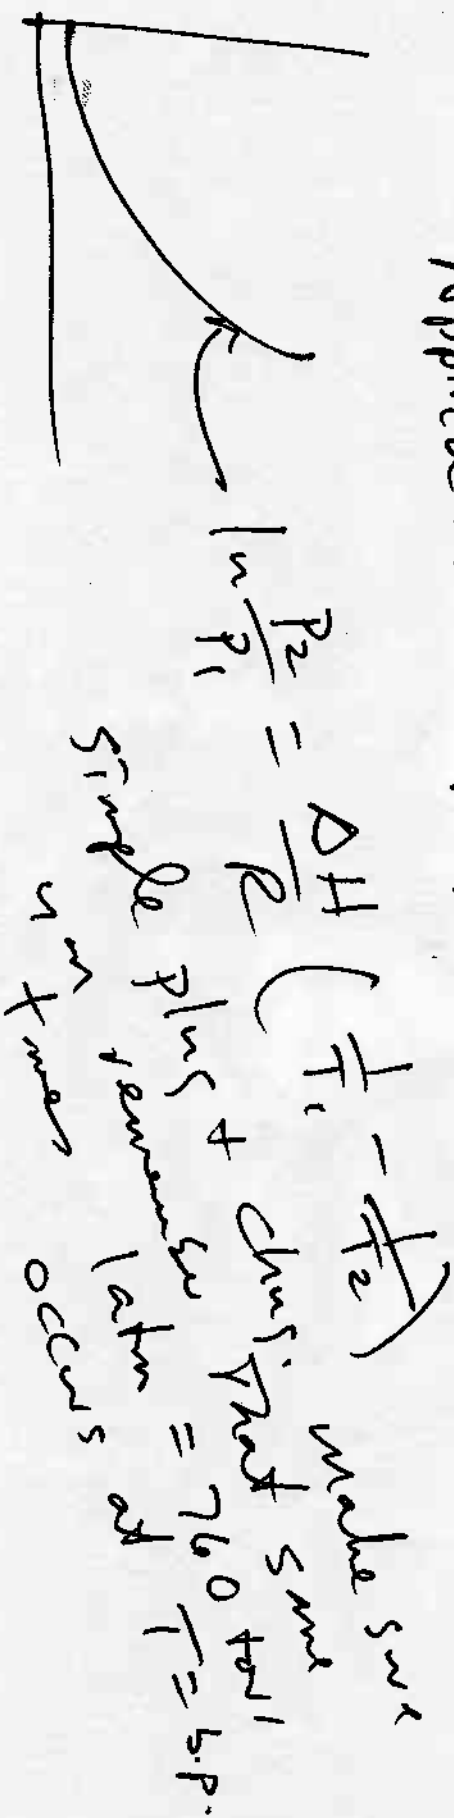 ln P2/P1 = ΔH/R (1/T1 - 1/T2) make sure
simple plug + chug. that same
remember 1 atm = 760 torr
occurs at T = b.p.